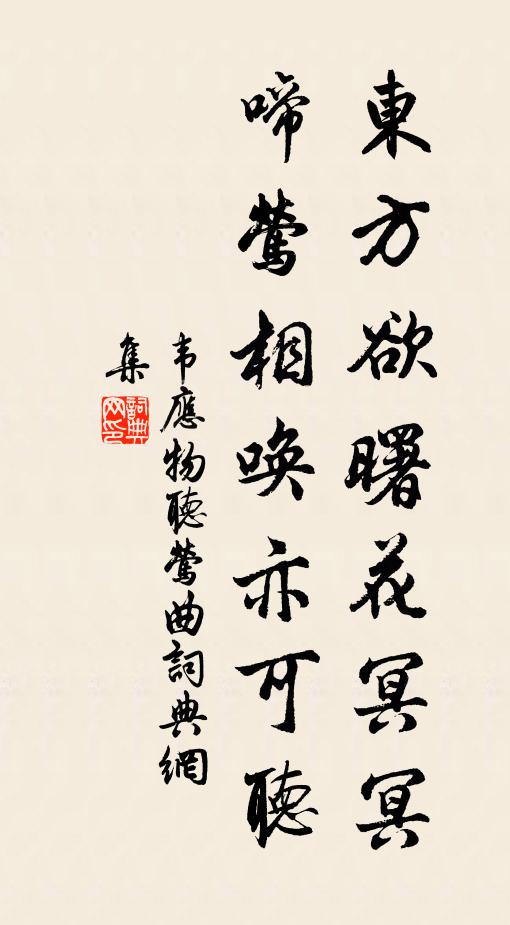 東方欲曙花冥冥
啼鶯相喚亦可聽
韦應物聽鶯曲詞典網
集
詞典
网印